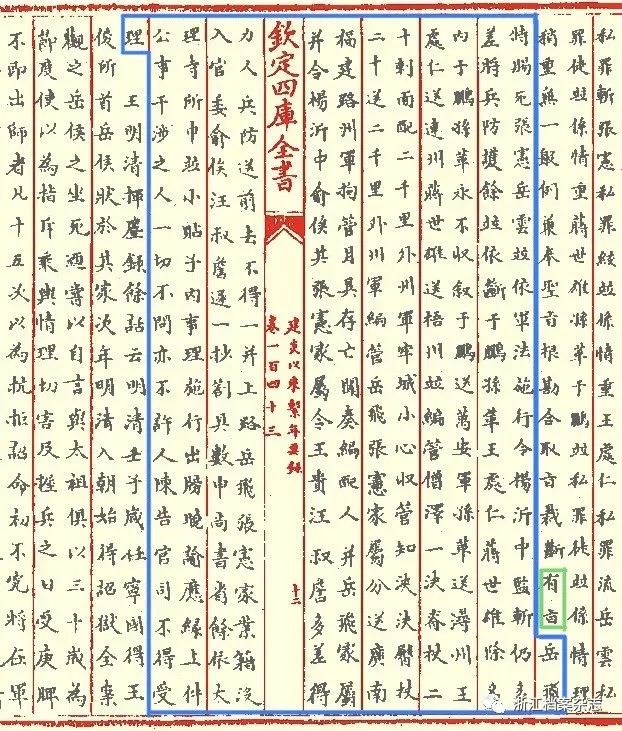 私罪斬張憲私罪絞並係情重王處仁私罪流岳雲私
罪徒並係情重蔣世雄孫革于鵬並私罪徒並係情理
稍重無一般例兼奉聖旨根勘合取旨裁斷有旨岳飛
特賜死張憲岳雲並依軍法施行令楊沂中監斬仍多
差將兵防護餘並依斷于鵬孫革王處仁蔣世雄除名
内于鵬孫革永不收叙于鵬送萬安軍孫革送潯州王
處仁送連州蔣世雄送梧州並編管僧澤一決脊杖二
十刺面配二千里外州軍牢城小心收管知浹決臀杖
二十送二千里外州軍編管岳飛張憲家屬分送廣南
福建路州軍拘管月具存亡聞奏編配人并岳飛家屬
并令楊沂中俞俟其張憲家屬令王貴汪叔詹多差得
欽定四庫全書
建炎以來繫年要録
卷一百四十三
十二
力人兵防送前去不得一并上路岳飛張憲家業籍沒
入官委俞俟汪叔詹逐一抄劄具數申尚書省餘依大
理寺所申並小貼子内事理施行出牓曉諭應緣上件
公事干涉之人一切不問亦不許人陳告官司不得受
理 王明清揮麈録餘話云明清壬子歲仕寧國得王
俊所首岳侯狀於其家次年明清入朝始得詔獄全案
觀之岳侯之坐死迺嘗以自言與太祖俱以三十歲為
節度使以為指斥乘輿情理切害及握兵之日受庚牌
不即出師者凡十五次以為抗拒詔命初不究將在軍
浙江档案杂志